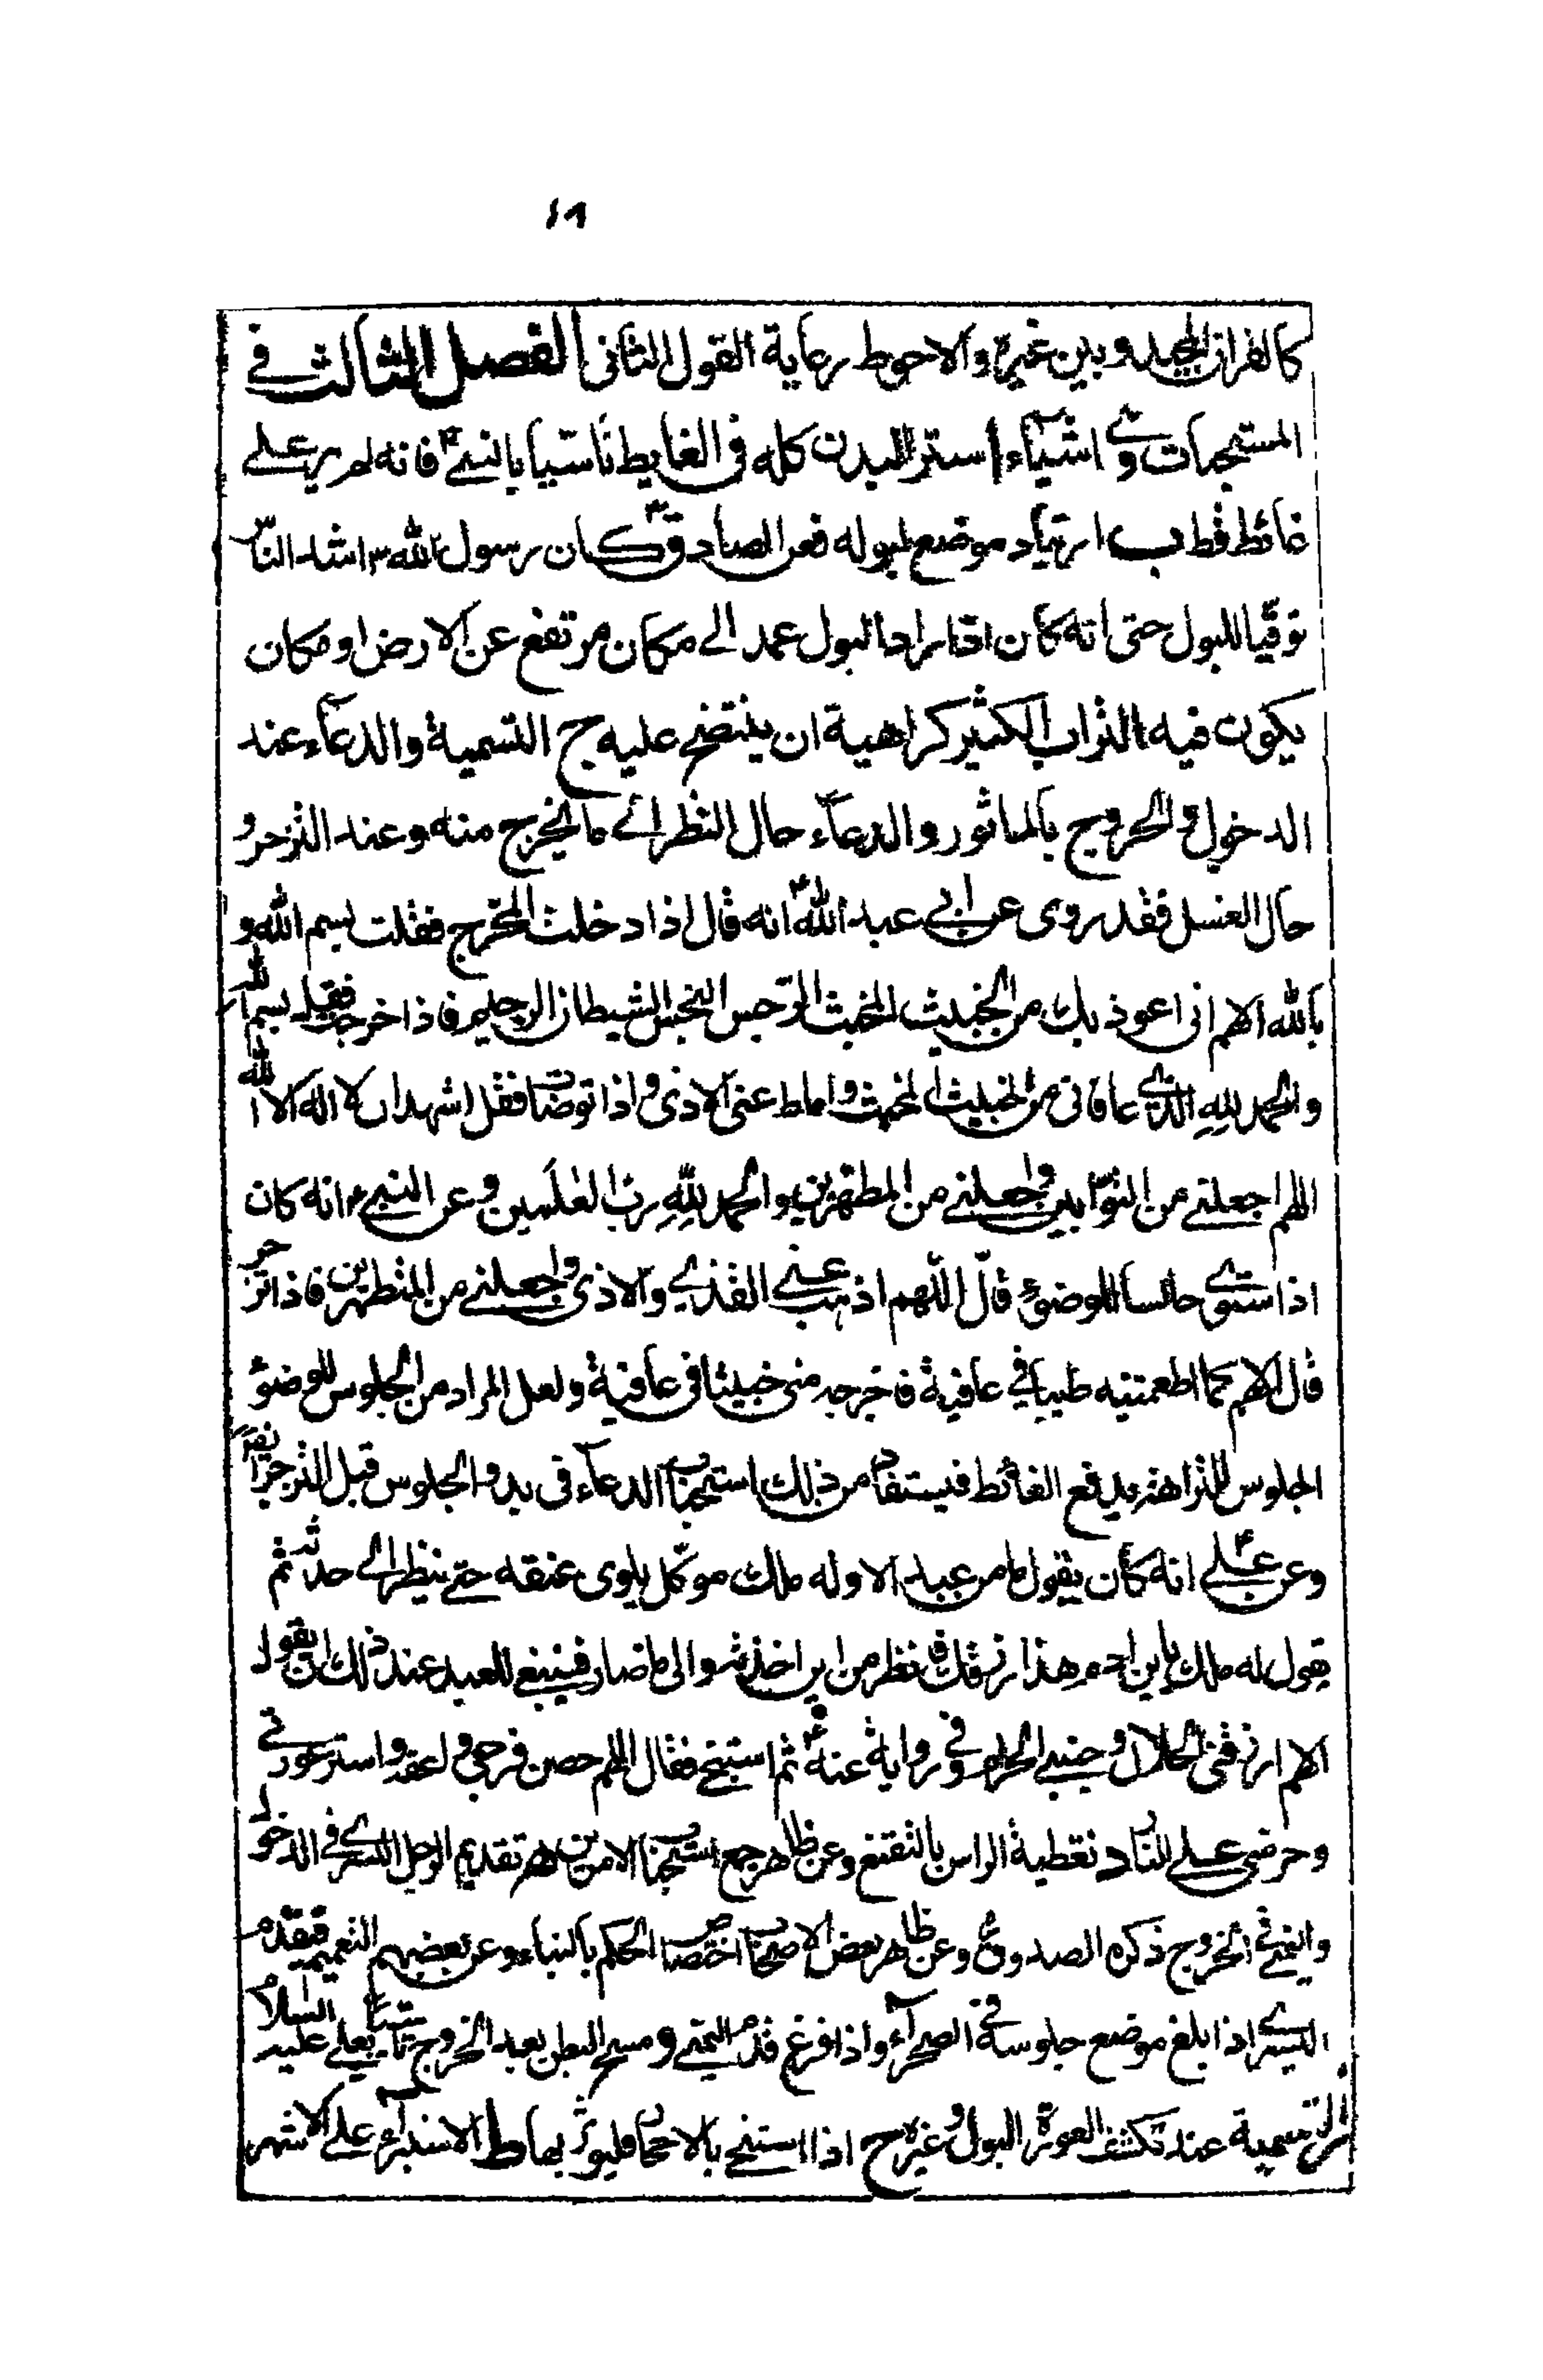 كالقران المجيد وبين غيره والاحوط رعاية القول الثانى الفصل الثالث في
المستحبات وهي اشيآء ا ستر البدن كله فى الغايط تاسّيا بالنبي ص فانه لم ير على
غائط قط ب ارتياد موضع لبوله فعن الصادق ع كان رسول الله ص اشد الناس
توقّيا للبول حتى انه كان اذا اراد البول عمد الى مكان مرتفع عن الارض او مكان
يكون فيه التراب الكثير كراهية ان ينتضح عليه ج التسمية والدعآء عند
الدخول والخروج بالماثور والدعآء حال النظر الى ما يخرج منه وعند التزحر و
حال الغسل فقد روى عن ابي عبد الله ع انه قال اذا دخلت المخرج فقلت بسم الله و
بالله اللهم انى اعوذ بك من الخبيث المخبث الرجس النجس الشيطان الرجيم فاذا خرجت فقل بسم الله
والحمد لله الذي عافانى من الخبيث المخبث واماط عنى الاذى واذا توضات فقل اشهد ان لا اله الا الله
اللهم اجعلني من التوّابين واجعلني من المطهرين والحمد لله رب العلمين وعن النبي ص انه كان
اذا ستوى جالسا للوضوء قال اللّهم اذهب عني القذي والاذى واجعلني من المتطهرين فاذا تزحر
قال اللهم كما اطعمتنيه طيبا في عافية فاخرجه منى خبيثا فى عافية ولعل المراد من الجلوس للوضوء
الجلوس دفع الغائط فيستفاد من ذلك استحباب الدعآء فى بدو الجلوس قبل التزحر
وعن علي ع انه كان يقول ما من عبد الا وله ملك موكّل يلوى عنقه حتى ينظر الى حدثه ثم
يقول له ملك يابن ادم هذا رزقك فانظر من اين اخذته والى ما صار فينبغي للعبد عند ذلك ان يقول
اللهم ارزقنى الحلال وجنبني الحرام وفي رواية عنه ع ثم استنجى فقال اللهم حصن فرجى واعفه واستر عورتي
وحرمني على النار د تغطية الراس بالتقنع وعن ظاهر جمع استحباب الامرين ه تقديم الرجل اليسرى في الدخول
واليمنى في الخروج ذكره الصدوق وعن ظاهر بعض الاصحاب اختصاص الحكم بالبناء وعن بعضهم التعميم فيقدم
اليسرى اذا بلغ موضع جلوسه في الصحرآء واذا فرغ قدم اليمنى و مسح البطن بعد الخروج تاسيا بعلي عليه السلام
ز التسمية عند تكشف العورة للبول وغيره ح اذا استنجى بالاحجار فليوتر بها ط الاستبرآء على الاشهر